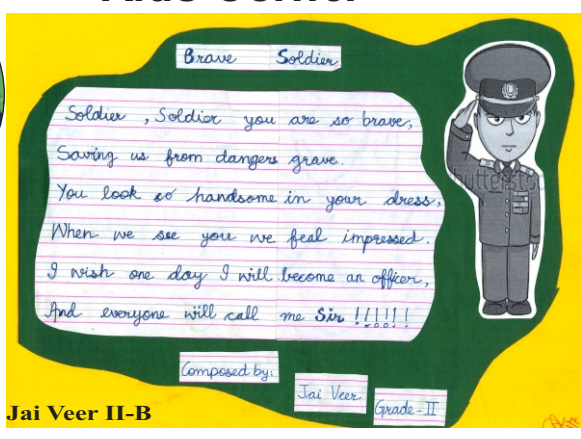 Brave Soldier
Soldier , Soldier you are so brave,
Saving us from dangers grave.
You look so handsome in your dress,
When we see you we feal impressed.
I wish one day I will become an officer,
And everyone will call me Sir !!!!!!
Composed by:
Jai Veer
Grade-II
Jai Veer II-B